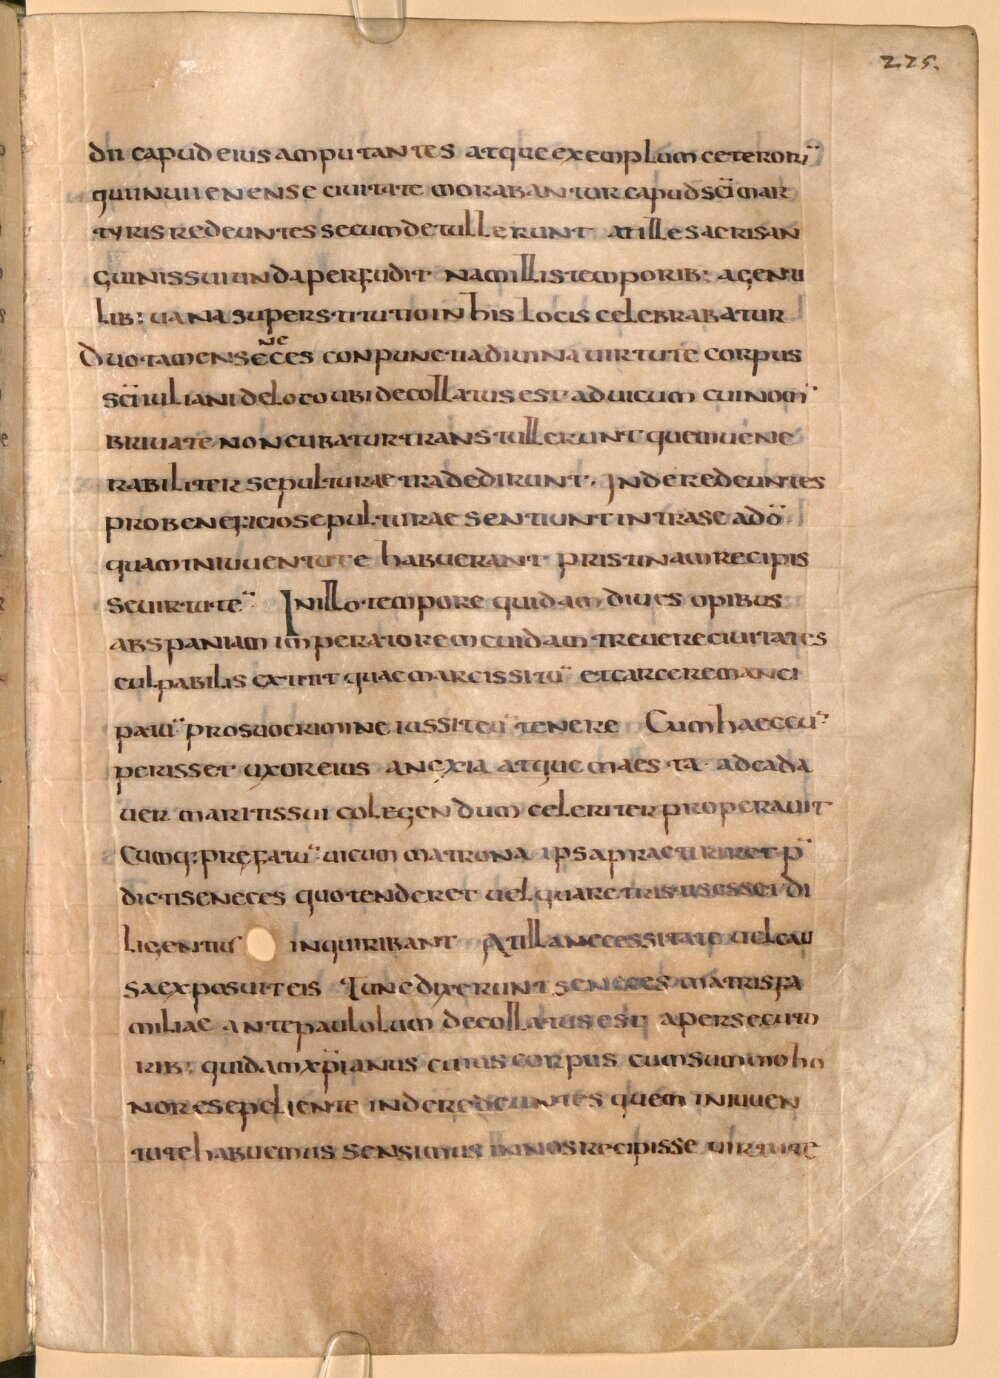 225.
dñi capud eius amputantes atque exemplum ceteroru̅
qui in uiienense ciuitate morabantur capud sc̅i mar
tyris redeuntes secum detullerunt at ille sacri san
guinis sui unda perfudit nam illis temporib: agenti
lib: uana superstitutio in his locis celebrabatur
Duo tamen seneces conpuncti a diuina uirtute corpus
sc̅i iuliani de loco ubi decollatus est ad uicum cui nom̅
briuate noncubatur trans tullerunt quem uene
rabiliter sepulturae tradedirunt. Inde redeuntes
pro beneficio sepulturae sentiunt intra se ad o̅
quam in iuuentute habuerant pristinam recipis
se uirtute̅ In illo tempore quidam diues opibus
ab spaniam imperatorem cuidam treuere ciuitates
culpabilis extitit quae marcis situ̅ et carcere manci
patu̅ pro suo crimine iussit eu̅ tenere Cum haec cu̅
perisset uxor eius ancxia atque maesta ad cada
uer mariti sui colegendum celeriter properauit
Cumq: prefatu̅ uicum matrona ipsa praeteriret p̅
dicti seneces quo tenderet uel quare tristis esset di
ligentius inquiribant At illa necessitate uel cau
sa exposuit eis Tunc dixerunt seneces matris fa
miliae ante paululum decollatus est a persecuto
rib: quidam xp̅ianus cuius corpus cum summo ho
nore sepeliente inde redeuntes quem in iuuen
tute habuemus sensimus in nos recipisse uirtute